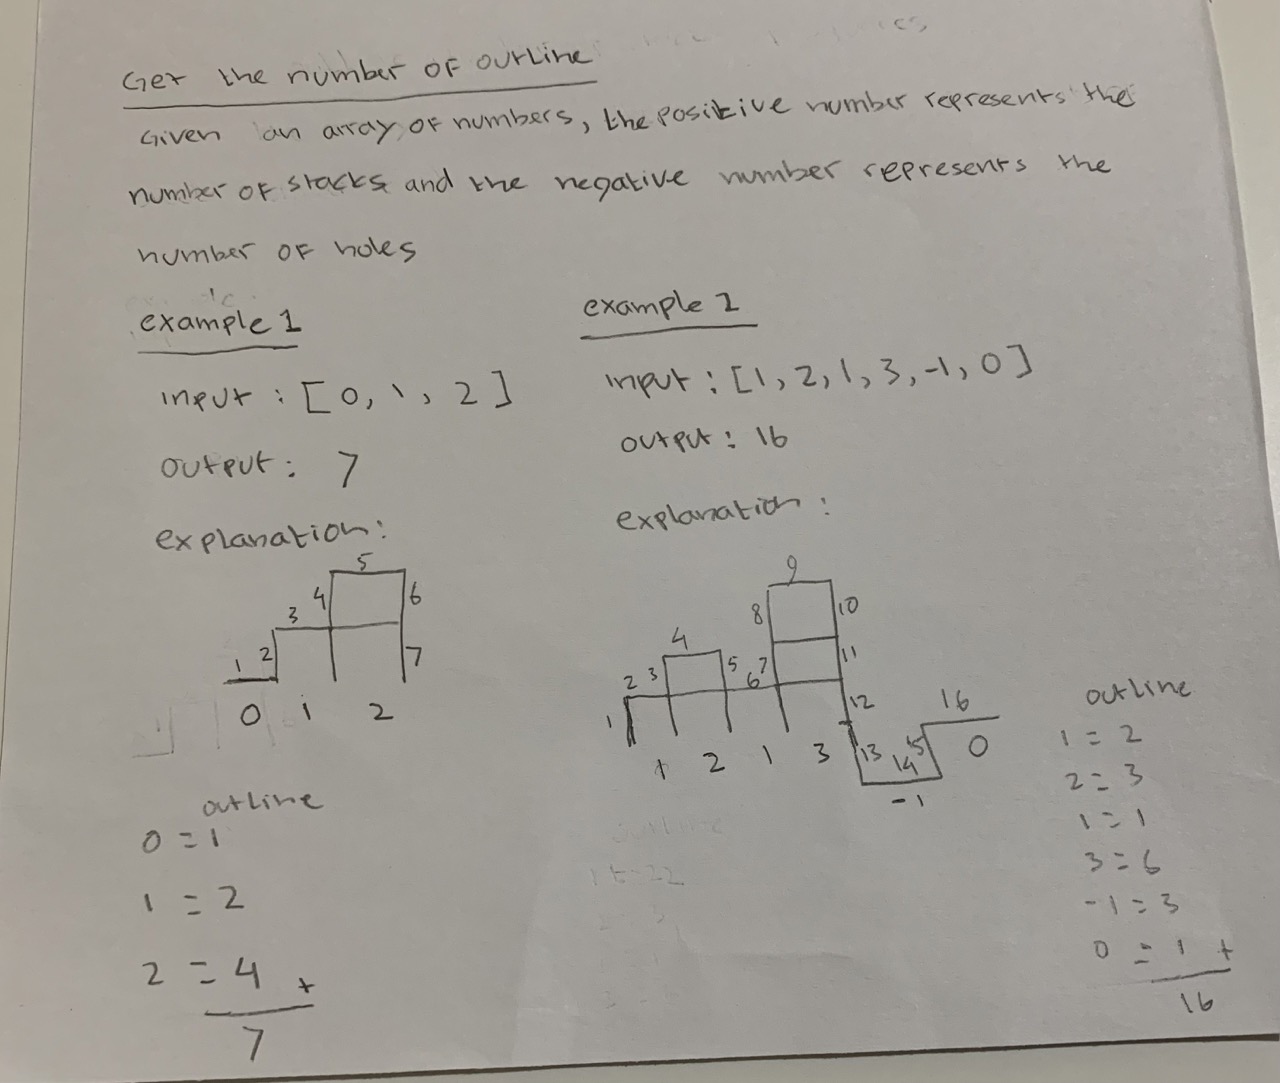 Get the number of outline
Given an array of numbers, the positive number represents the
number of stacks and the negative number represents the
number of holes
example 1
input : [0, 1, 2]
output : 7
explanation :
5
4
6
3
1
2
7
0 1 2
outline
0 = 1
1 = 2
2 = 4 +
7
example 2
input : [1, 2, 1, 3, -1, 0]
output : 16
explanation :
9
8
10
4
2
3
5
6
7
11
1
12
16
13
14
15
0
1 2 1 3
-1
outline
1 = 2
2 = 3
1 = 1
3 = 6
-1 = 3
0 = 1 +
16